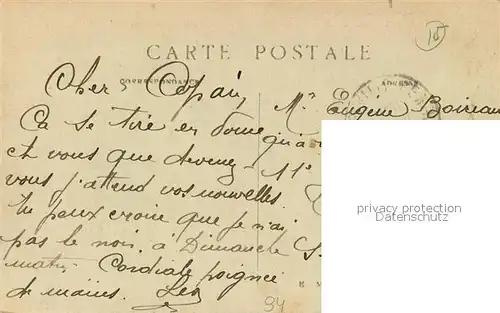 CARTE POSTALE
CORRESPONDANCE
ADRESSE
Cher Copain
Ça se tire en douce
et vous que devenez-
vous j'attend vos nouvelles.
tu peux croire que je n'ai
pas le noir. à Dimanche
matin Cordiale poignée
de mains. Leo
Mr Eugene Boireau
11e
94
privacy protection
Datenschutz